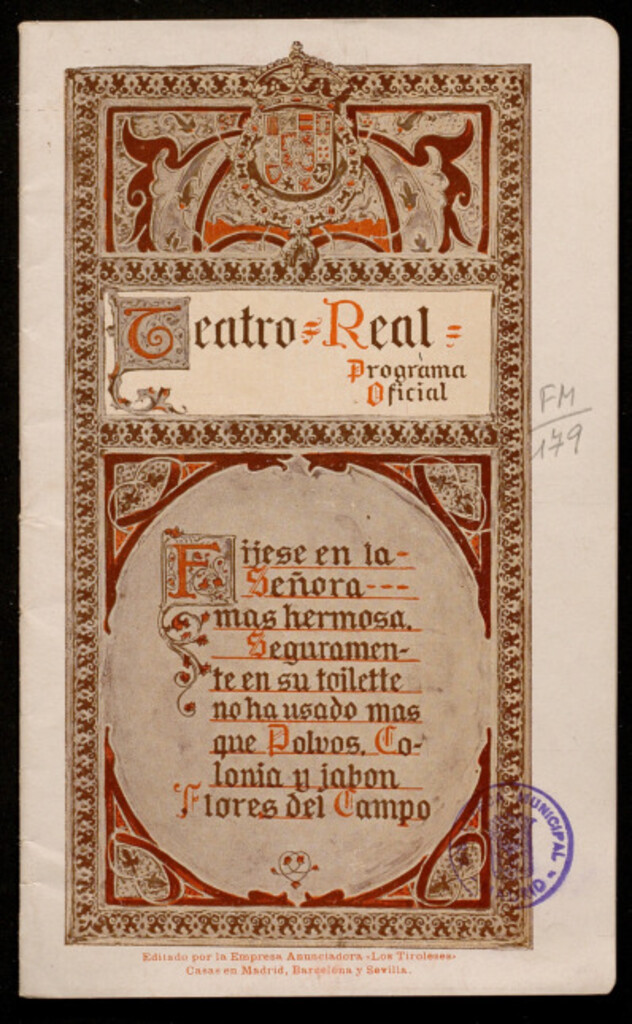 Teatro = Real =
Programa
Oficial
FM
179
Fijese en la-
Señora ---
mas hermosa.
Seguramen-
te en su toilette
no ha usado mas
que Polvos, Co-
lonia y jabon
Flores del Campo
MUNICIPAL
Editado por la Empresa Anunciadora «Los Tiroleses»
Casas en Madrid, Barcelona y Sevilla.